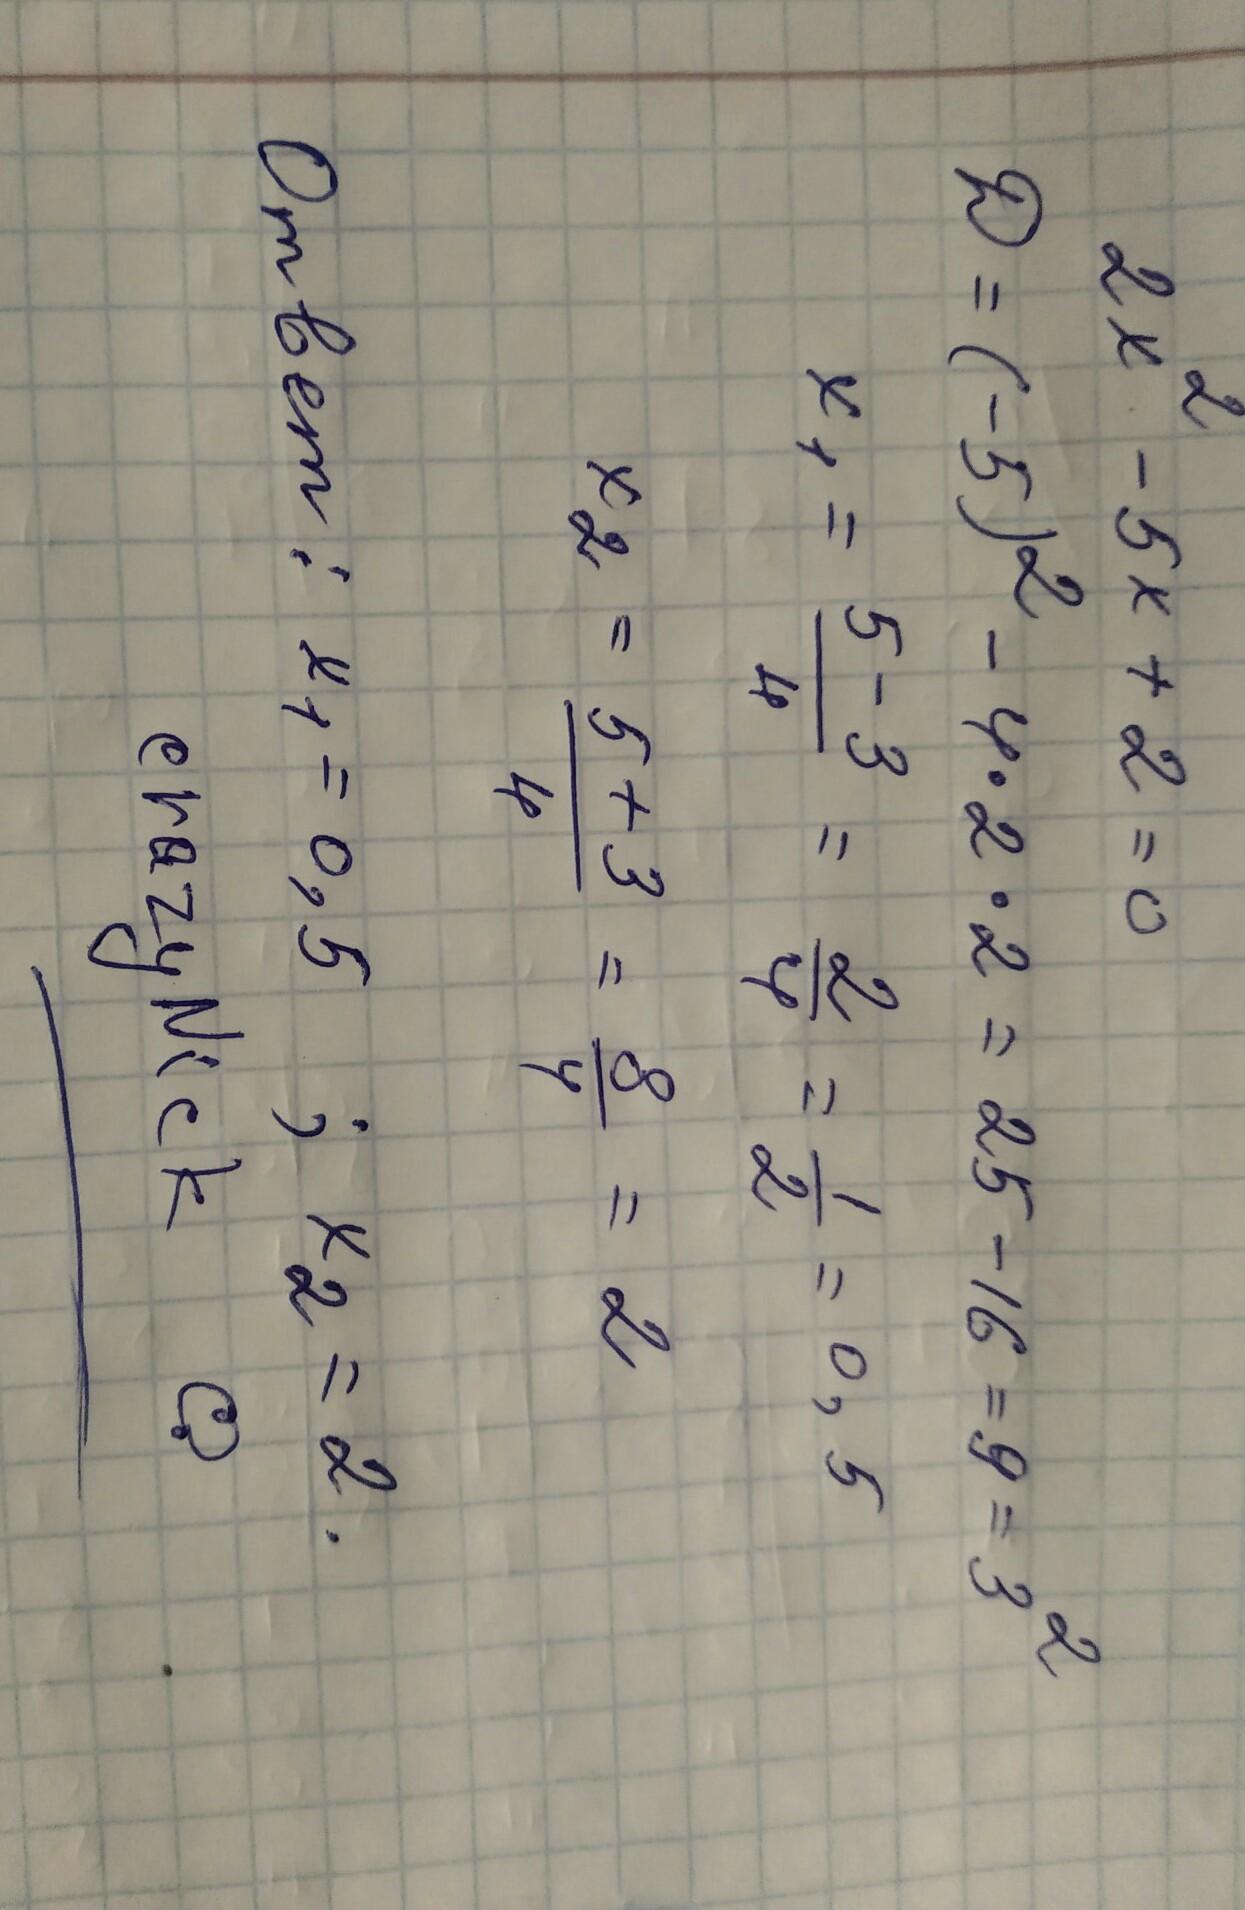 2x² - 5x + 2 = 0
D = (-5)² - 4·2·2 = 25 - 16 = 9 = 3²
x₁ = (5-3)/4 = 2/4 = 1/2 = 0,5
x₂ = (5+3)/4 = 8/4 = 2
Ответ: x₁ = 0,5 ; x₂ = 2.
crazyNick